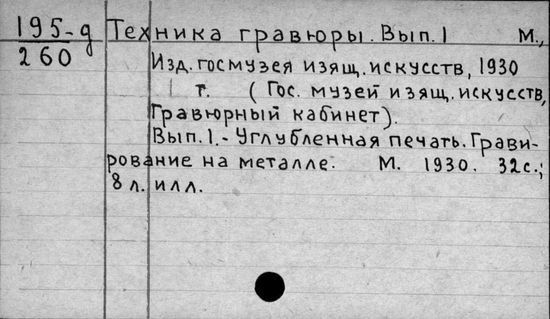 195-д Техника гравюры. Вып. 1 М.,
260
Изд. госмузея изящ. искусств, 1930
1 т. (Гос. музей изящ. искусств,
Гравюрный кабинет).
Вып. 1. - Углубленная печать. Грави-
рование на металле. М. 1930. 32 с.;
8 л. илл.